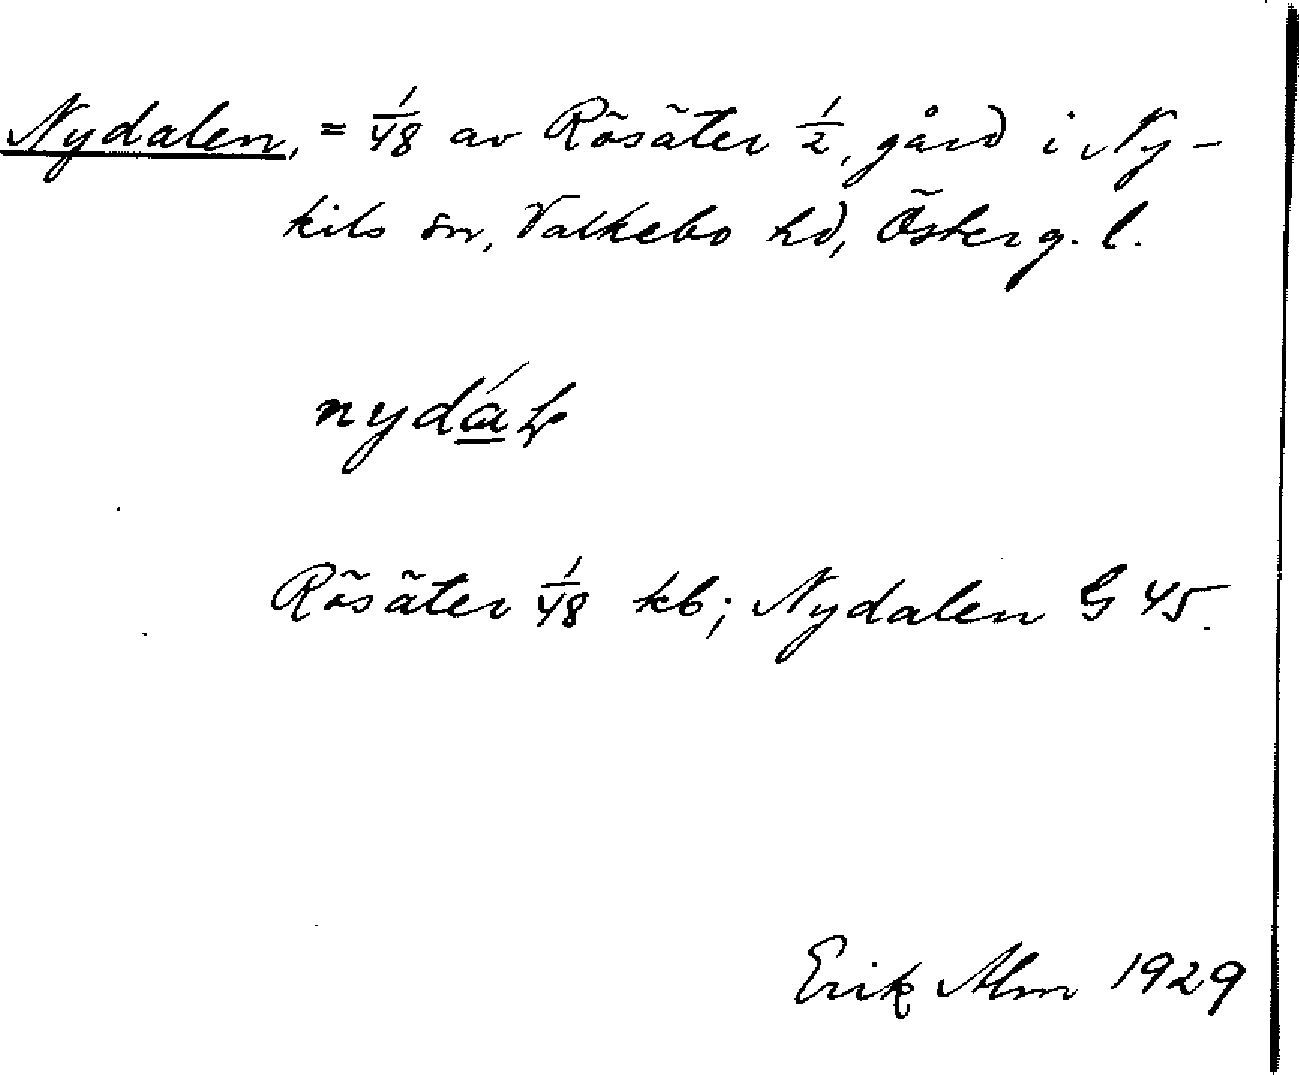 Nydalen, = 1/48 av Rösäter 1/2, gård i Ny-
kils sn, Valkebo hd, Österg. l.
Rösäter 1/48 kb; Nydalen G 45.
Erik Alm 1929